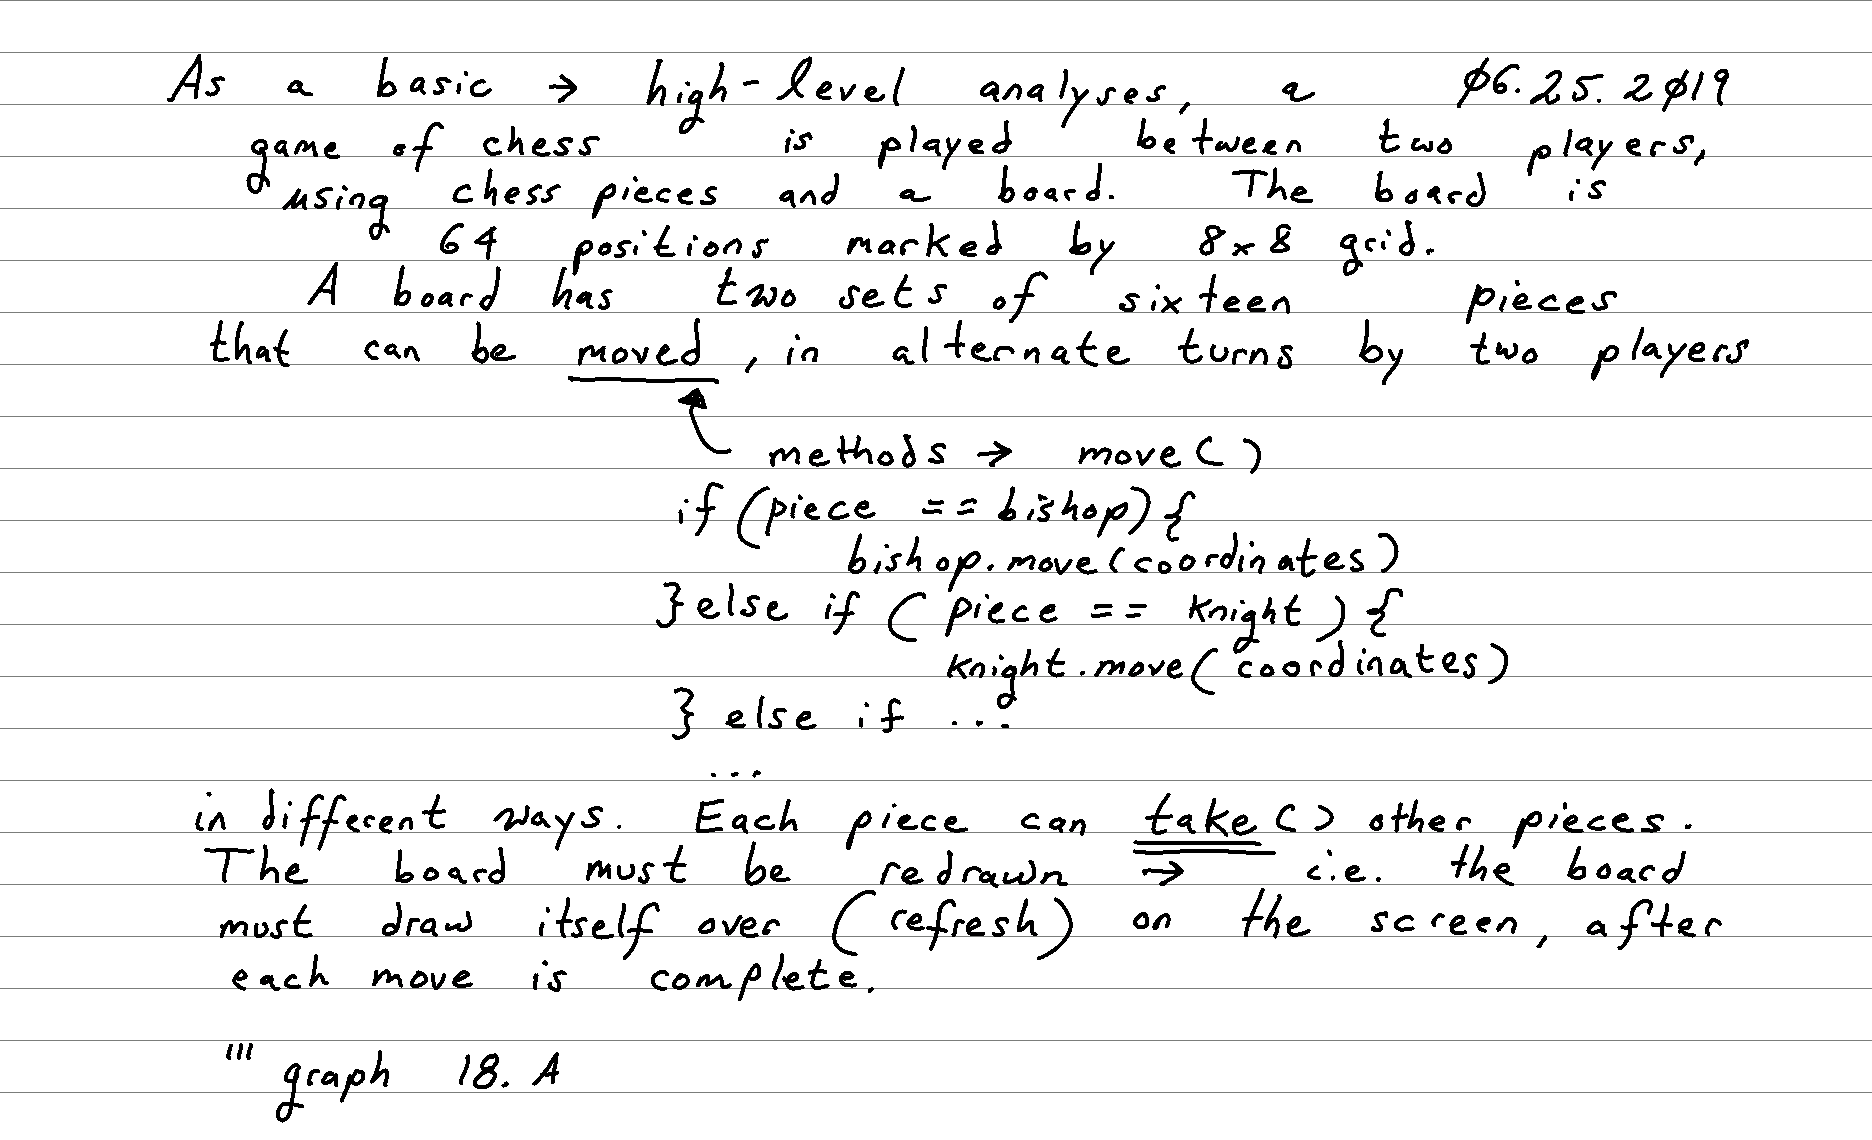 As a basic → high-level analyses, a Ø6.25.2Ø19
game of chess is played between two players,
using chess pieces and a board. The board is
64 positions marked by 8x8 grid.
A board has two sets of sixteen pieces
that can be moved, in alternate turns by two players
methods → move()
if (piece == bishop) {
bishop.move(coordinates)
} else if ( piece == knight ) {
knight.move(coordinates)
} else if ...
...
in different ways. Each piece can take() other pieces.
The board must be redrawn → i.e. the board
must draw itself over (refresh) on the screen, after
each move is complete.
''' graph 18. A